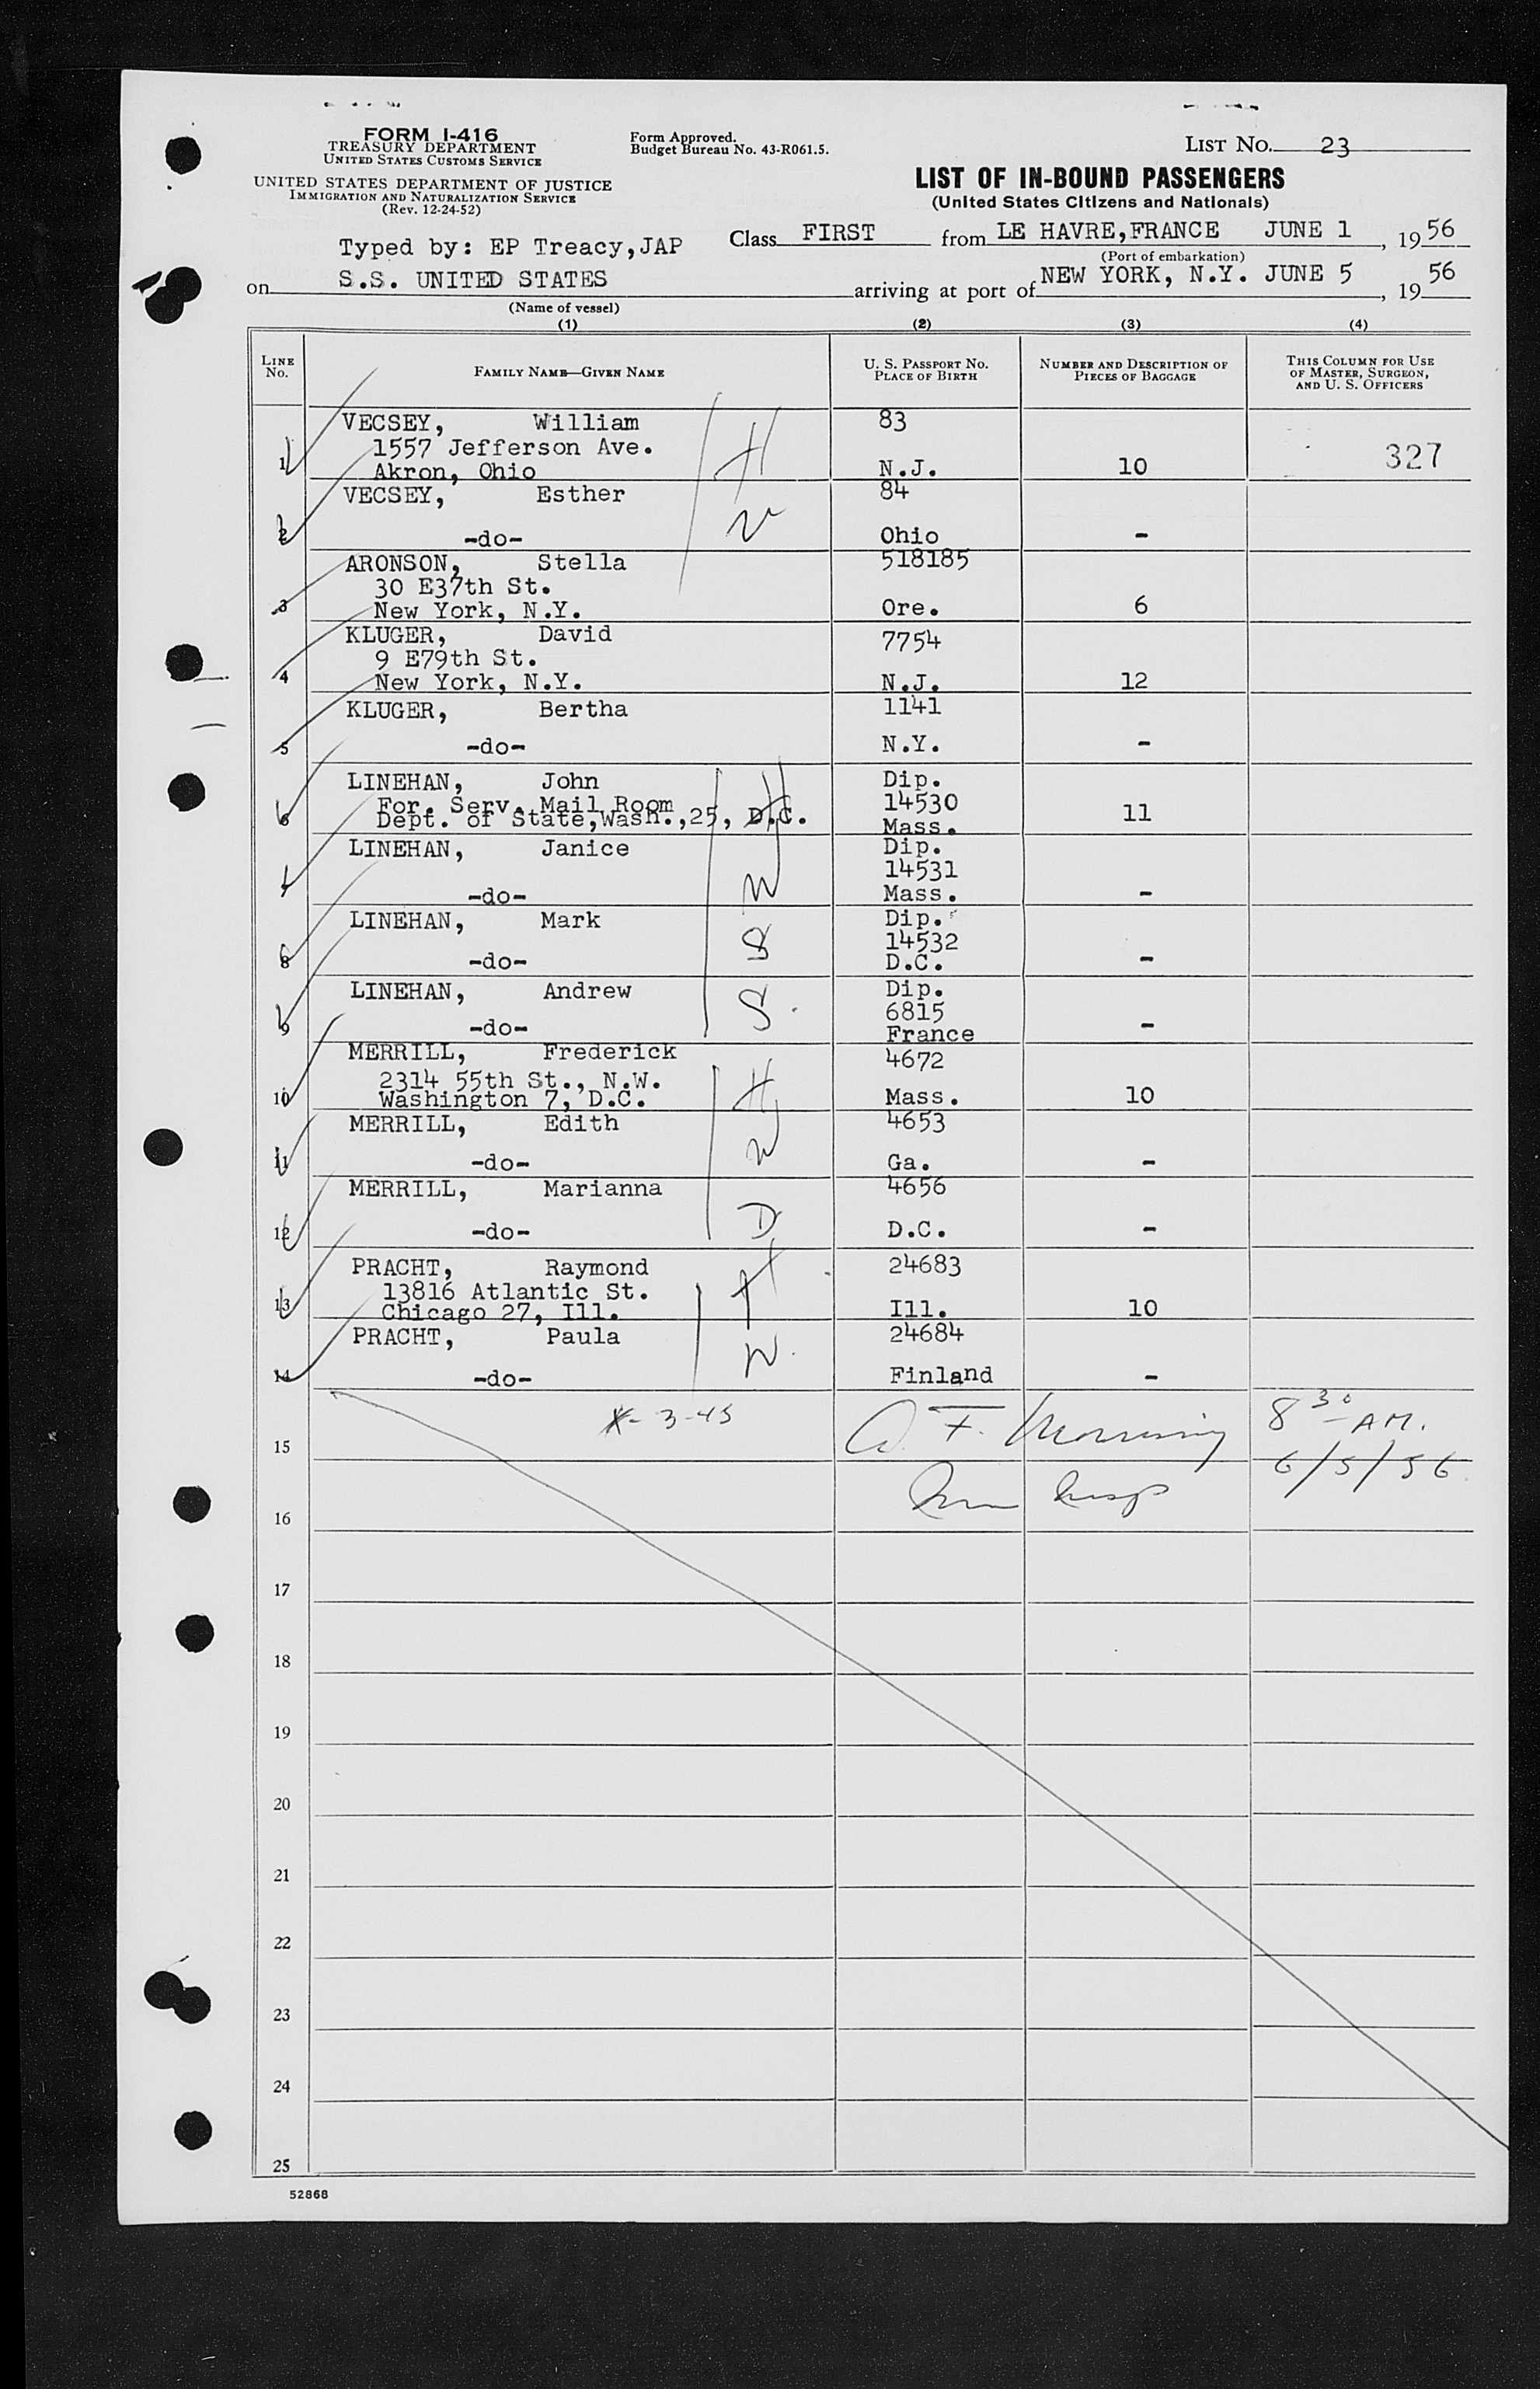 FORM I-416
TREASURY DEPARTMENT
UNITED STATES CUSTOMS SERVICE
UNITED STATES DEPARTMENT OF JUSTICE
IMMIGRATION AND NATURALIZATION SERVICE
(Rev. 12-24-52)
Form Approved.
Budget Bureau No. 43-R061.5.
LIST No. 23
LIST OF IN-BOUND PASSENGERS
(United States Citizens and Nationals)
Typed by: EP Treacy,JAP
Class FIRST from LE HAVRE,FRANCE JUNE 1, 1956
(Port of embarkation)
on S.S. UNITED STATES arriving at port of NEW YORK, N.Y. JUNE 5, 1956
(Name of vessel)
(1) (2) (3) (4)
LINE No.
FAMILY NAME—GIVEN NAME
U. S. PASSPORT NO.
PLACE OF BIRTH
NUMBER AND DESCRIPTION OF
PIECES OF BAGGAGE
THIS COLUMN FOR USE
OF MASTER, SURGEON,
AND U. S. OFFICERS
VECSEY, William 83
1557 Jefferson Ave. H 327
1 Akron, Ohio N.J. 10
VECSEY, Esther 84
W
2 -do- Ohio -
ARONSON, Stella 518185
30 E37th St.
3 New York, N.Y. Ore. 6
KLUGER, David 7754
9 E79th St.
4 New York, N.Y. N.J. 12
KLUGER, Bertha 1141
5 -do- N.Y. -
LINEHAN, John H Dip.
For. Serv. Mail Room 14530
6 Dept. of State,Wash.,25, D.C. Mass. 11
LINEHAN, Janice Dip.
W 14531
7 -do- Mass. -
LINEHAN, Mark Dip.
S 14532
8 -do- D.C. -
LINEHAN, Andrew Dip.
S 6815
9 -do- France -
MERRILL, Frederick 4672
2314 55th St., N.W. H
10 Washington 7, D.C. Mass. 10
MERRILL, Edith 4653
W
11 -do- Ga. -
MERRILL, Marianna 4656
D
12 -do- D.C. -
PRACHT, Raymond 24683
13816 Atlantic St. H
13 Chicago 27, Ill. Ill. 10
PRACHT, Paula 24684
W
14 -do- Finland -
8 30 AM.
15
6/5/56
16
17
18
19
20
21
22
23
24
25
52868